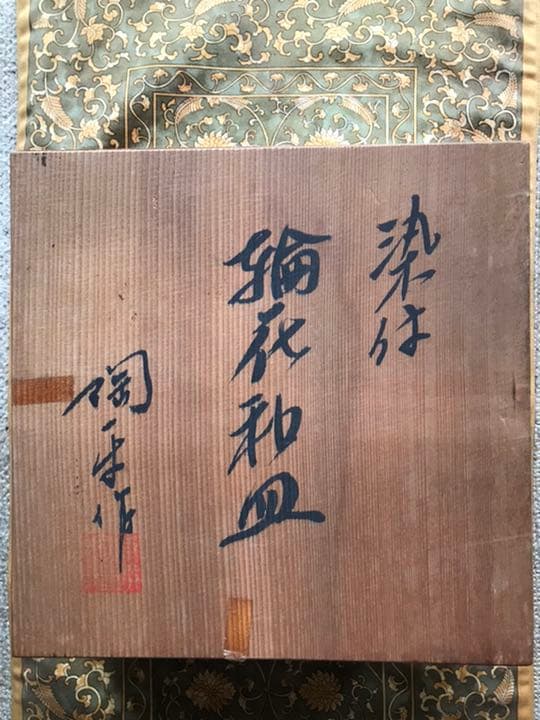 染付
輪花和皿
陶平作